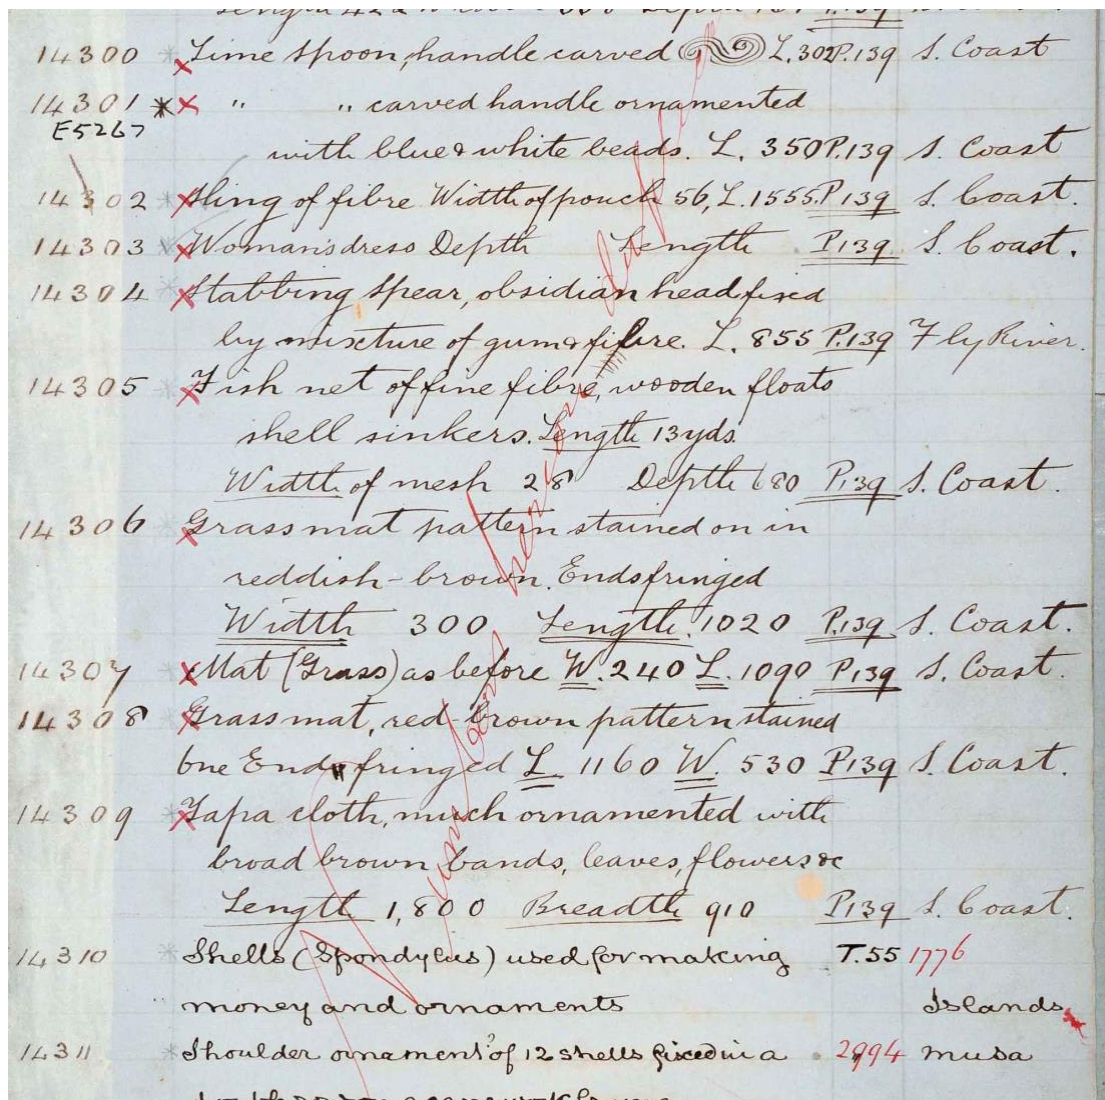 14300 Lime spoon, handle carved L. 302 P.139 S. Coast
14301 " " carved handle ornamented
E5267
with blue & white beads. L. 350 P.139 S. Coast
14302 Sling of fibre Width of pouch 56, L. 1555. P139 S. Coast.
14303 Woman's dress Depth Length P.139. S. Coast.
14304 Stabbing Spear, obsidian head fixed
by mixture of gum & fibre. L. 855 P.139 Fly River.
14305 Fish net of fine fibre, wooden floats
shell sinkers. Length 13 yds.
Width of mesh 28 Depth 680 P.139 S. Coast.
14306 Grass mat pattern stained on in
reddish-brown. Ends fringed
Width 300 Length. 1020 P.139 S. Coast.
14307 Mat (Grass) as before W. 240 L. 1090 P139 S. Coast.
14308 Grass mat, red-brown pattern stained
one End fringed L. 1160 W. 530 P139 S. Coast.
14309 Tapa cloth, much ornamented with
broad brown bands, leaves, flowers &c
Length 1,800 Breadth 910 P139 S. Coast.
14310 Shells (Spondylus) used for making T.55 1776
money and ornaments Islands
14311 Shoulder ornament of 12 shells fixed in a 2994 musa